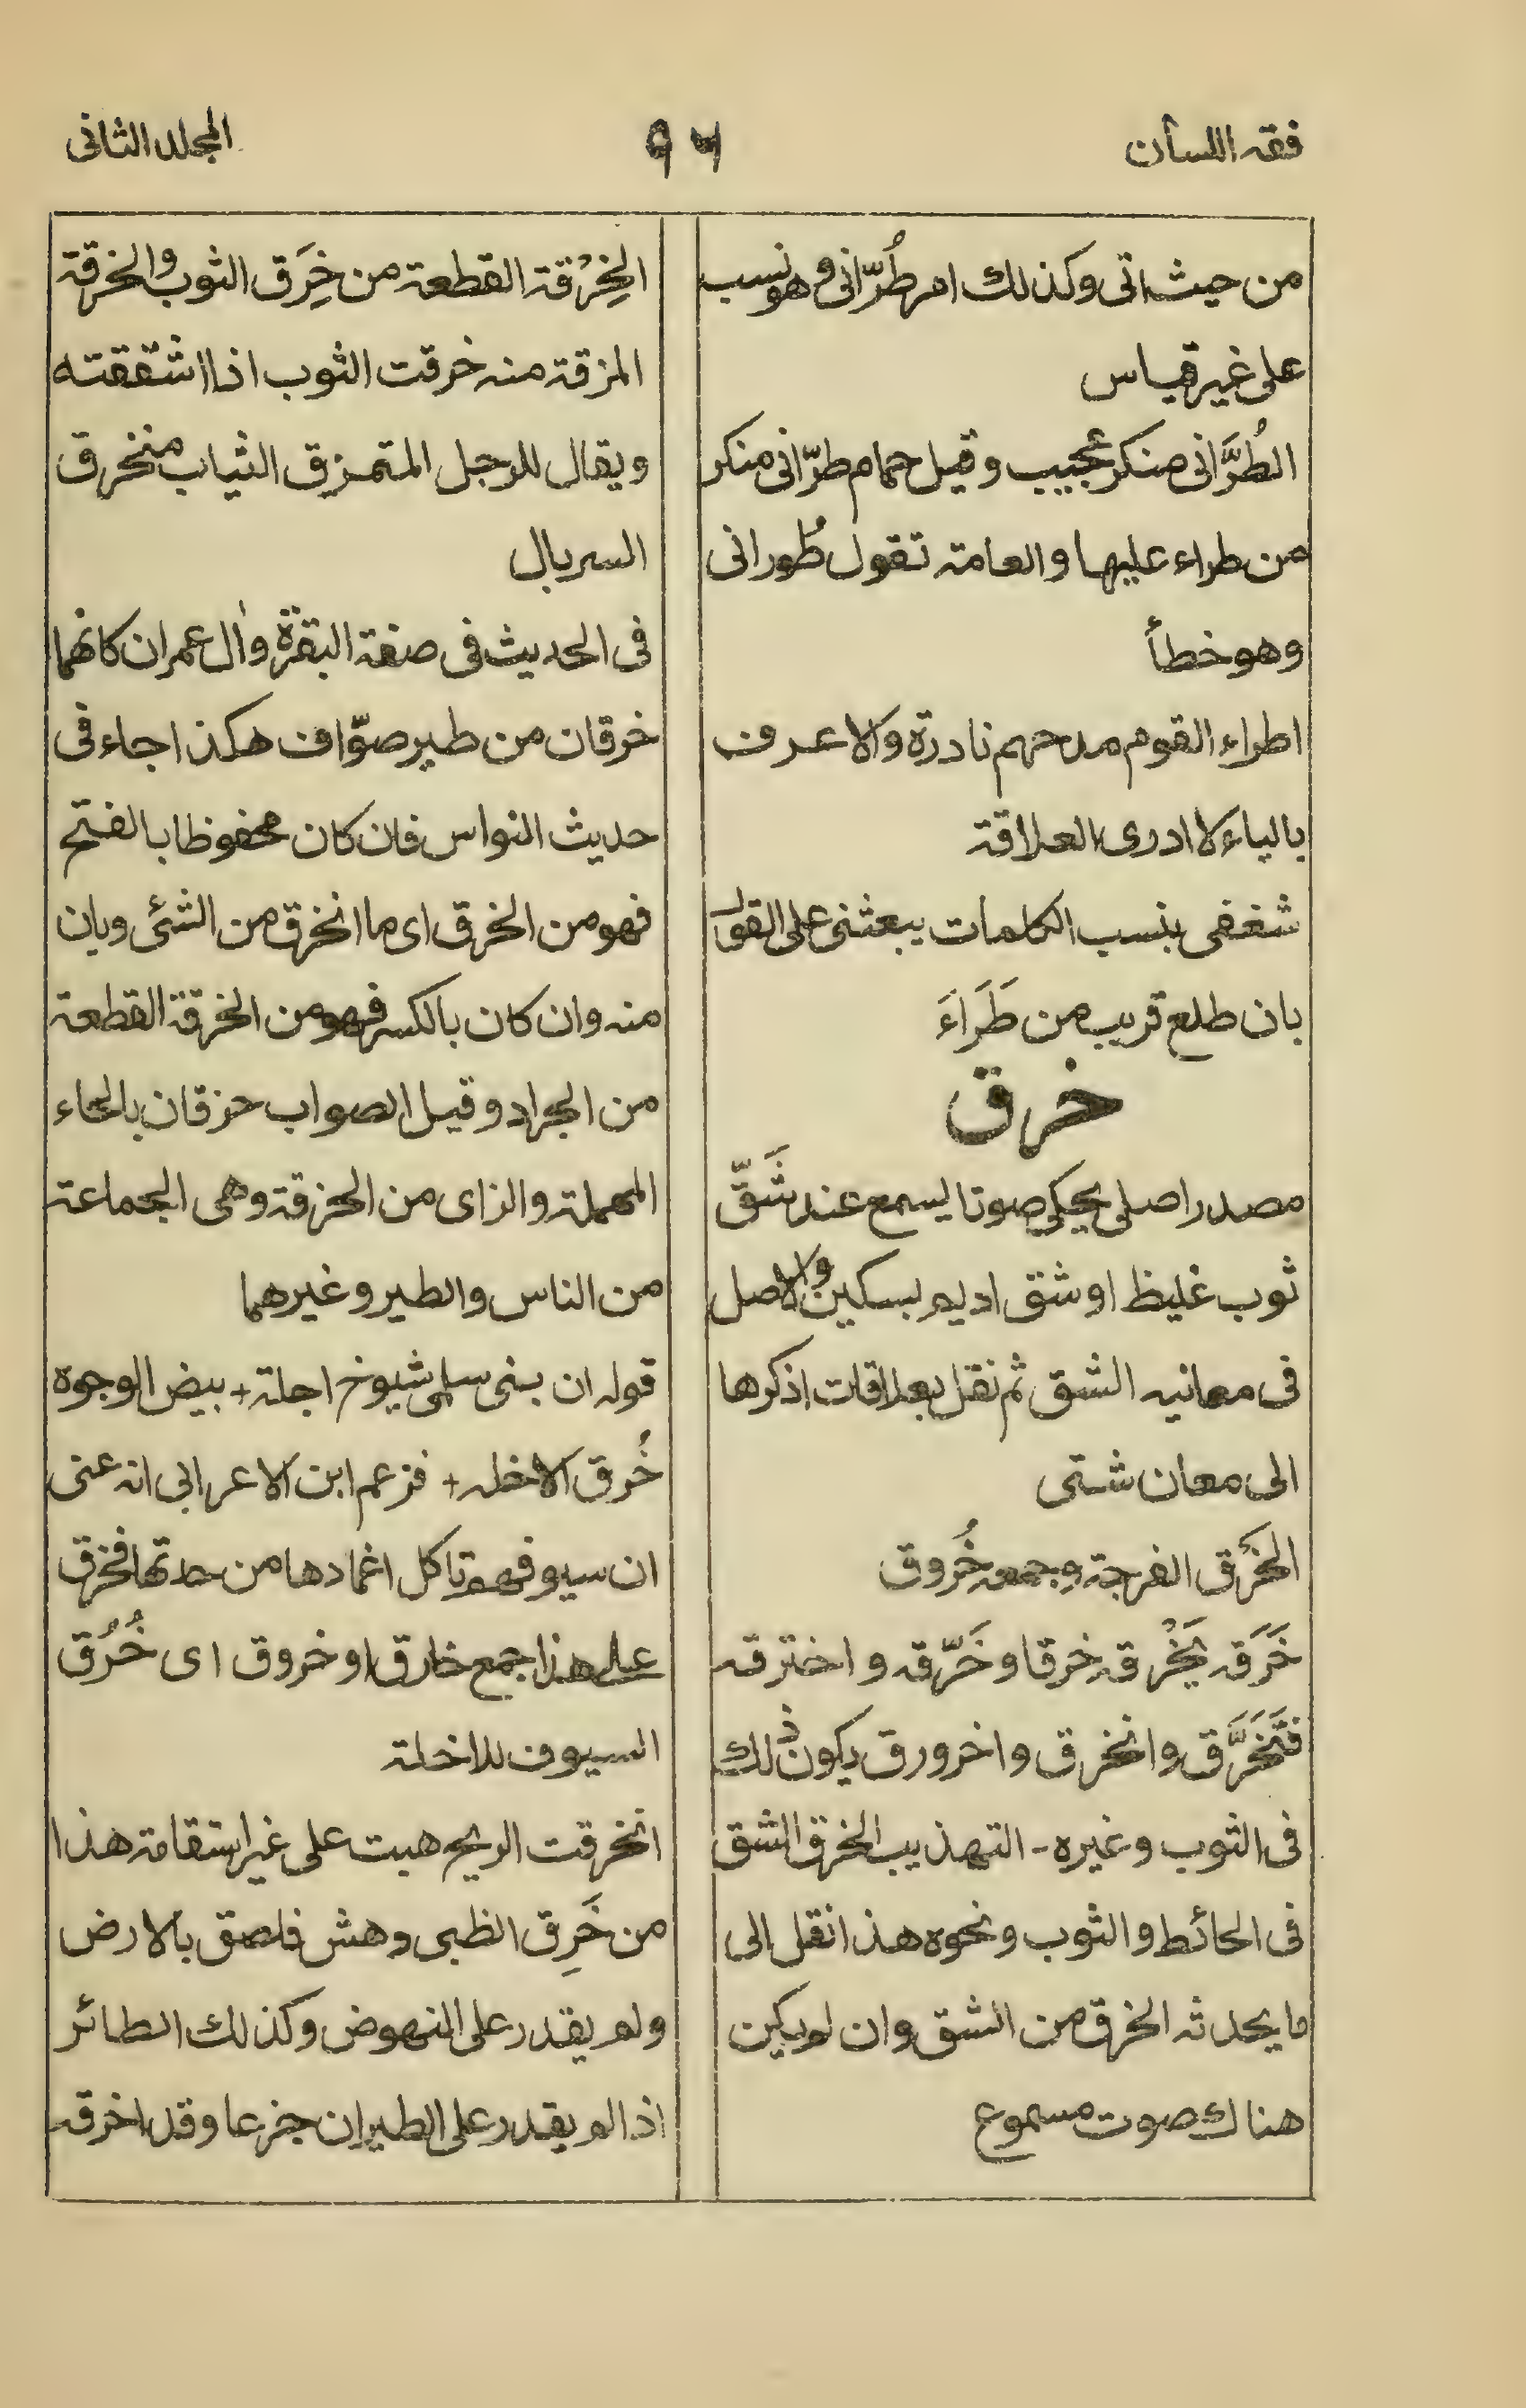 فقه اللسان
٩٦
المجلد الثانى
من حيث اتى وكذلك امر طُرّانى وهو نسب
على غير قياس
الطُرَّانى منكر عجيب وقيل حمام طرّانى منكر
من طراء عليها والعامة تقول طُورانى
وهو خطأ
اطراء القوم مدحهم نادرة والاعرف
بالياء لا ادرى العلاقة
شغفى بنسب الكلمات يبعثنى على القول
بان طلع قريب من طَرَاءَ
خرق
مصدر اصلى يحكى صوتا يسمع عند شَقّ
ثوب غليظ او شق اديم بسكين والاصل
فى معانيه الشق ثم نقل بعلاقات اذكرها
الى معان شتى
الخَرْق الفرجة وجمعه خُروق
خَرَقه يَخْرُقه خرقا وخَرّقه واخترقه
فتَخَرَّق وانخرق واخرورق يكون ذلك
فى الثوب وغيره - التهذيب الخرق الشق
فى الحائط والثوب ونحوه هذا نقل الى
ما يحدثه الخرق من الشق وان لم يكن
هناك صوت مسموع
الخِرْقة القطعة من خِرَق الثوب والخرقة
المزقة منه خرقت الثوب اذا اشققته
ويقال للرجل المتمزق الثياب منخرق
السربال
فى الحديث فى صفة البقرة وأل عمران كانهما
خرقان من طير صوّاف هكذا جاء فى
حديث النواس فان كان محفوظا بالفتح
فهو من الخرق اى ما انخرق من الشئى وبان
منه وان كان بالكسر فهو من الخرقة القطعة
من الجراد وقيل الصواب حزقان بالحاء
المهملة والزاى من الحزقة وهى الجماعة
من الناس والطير وغيرهما
قوله ان بنى سلمى شيوخ اجلة + بيض الوجوه
خُرق الاخله + فزعم ابن الاعرابى انه عنى
ان سيوفهم تاكل اغمادها من حدتها فخرق
على هذا جمع خارق او خروق اى خُرُق
السيوف للاخلة
انخرقت الريح هبت على غير استقامة هذا
من خَرِق الظبى دهش فلصق بالارض
ولم يقدر على النهوض وكذلك الطائر
اذا لم يقدر على الطيران جزعا وقد اخرقه